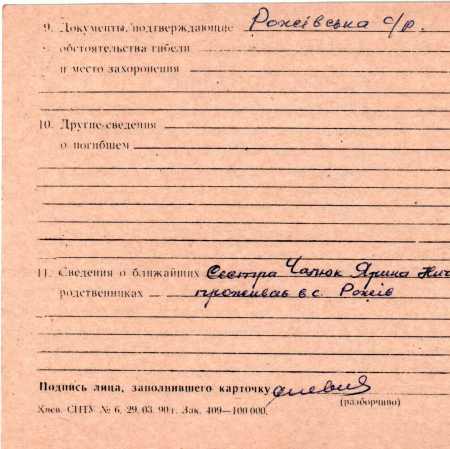 9. Документы, подтверждающие Рожівська с/р.
обстоятельства гибели
и место захоронения
10. Другие сведения
о погибшем
11. Сведения о ближайших Сестра Чапюк Ярина Нич
родственниках проживає в с. Рожів
Подпись лица, заполнившего карточку
(разборчиво)
Киев. СПТУ № 6. 29. 03. 90 г. Зак. 409—100 000.